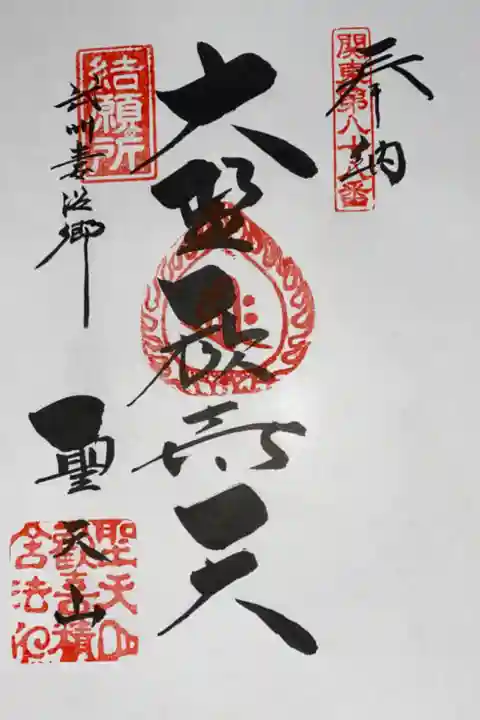 奉納
関東第八十八番
大聖歓喜天
結願所
武州妻沼郷
聖天山
聖天山
歓喜精
舎法印